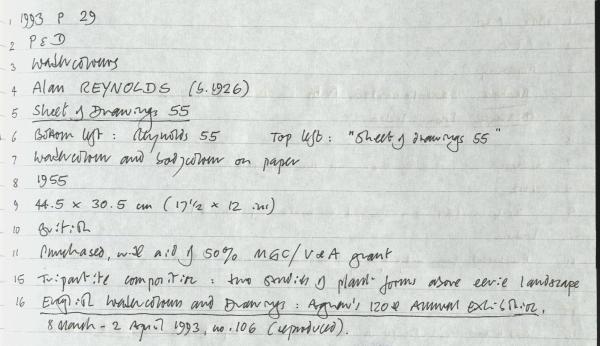 1 1993 P 29
2 P&D
3 Watercolours
4 Alan REYNOLDS (b.1926)
5 Sheet of Drawings 55
6 Bottom left: Reynolds 55 Top left: "Sheet of drawings 55"
7 Watercolour and bodycolour on paper
8 1955
9 44.5 x 30.5 cm (17 1/2 x 12 ins)
10 British
11 Purchased, with aid of 50% MGC/V&A grant
15 Tripartite composition: two studies of plant forms above eerie landscape
16 English Watercolours and Drawings: Agnew's 120th Annual Exhibition,
8 March - 2 April 1993, no. 106 (reproduced).